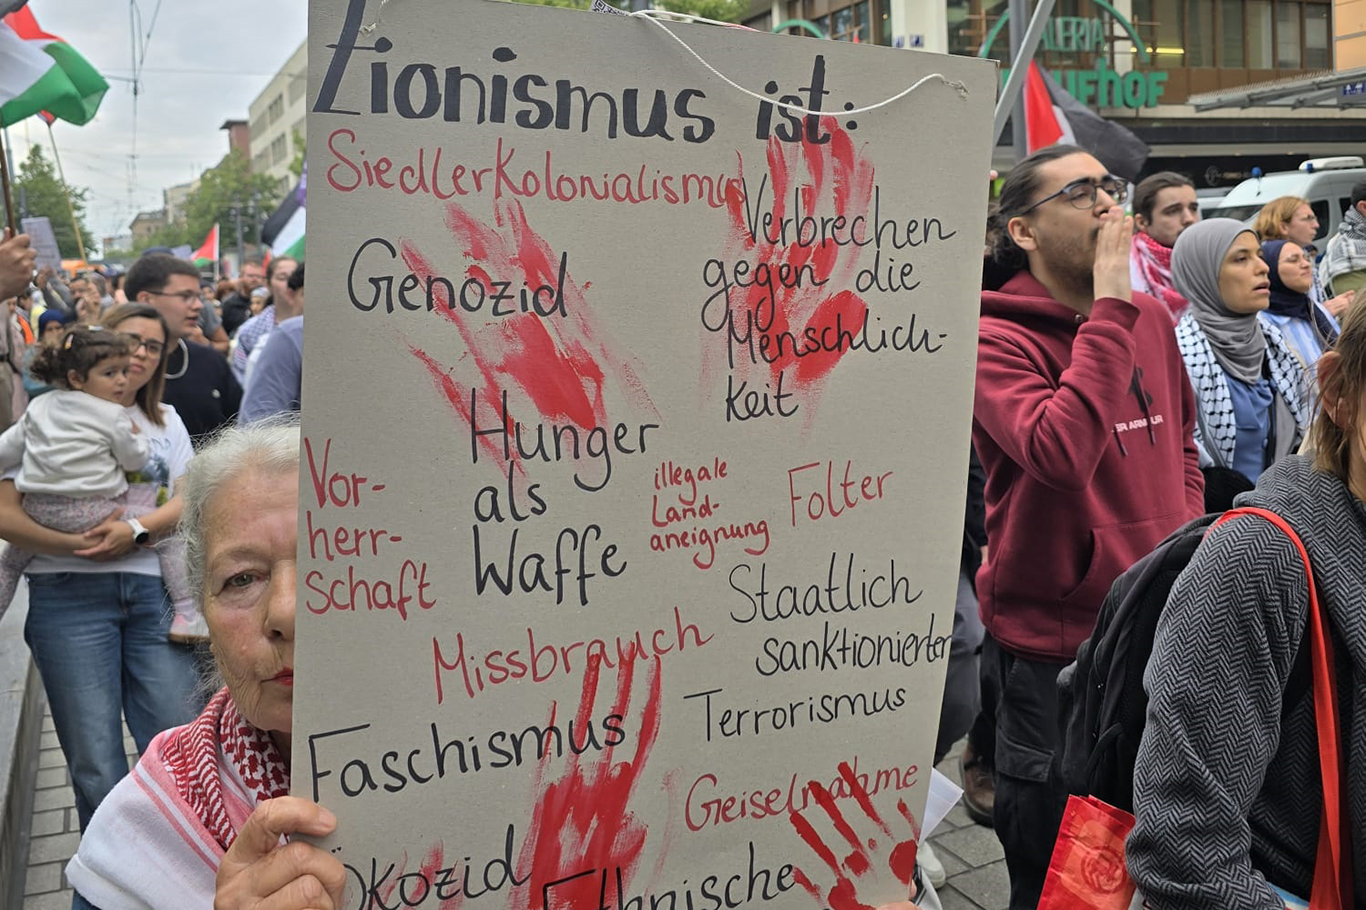 Zionismus ist:
Siedlerkolonialismus
Verbrechen
gegen die
Menschlich-
keit
Genozid
Hunger
als
Waffe
Vor-
herr-
schaft
illegale
Land-
aneignung
Folter
Staatlich
sanktionierter
Terrorismus
Missbrauch
Faschismus
Geiselnahme
Ökozid
Ethnische
GALERIA
KAUFHOF